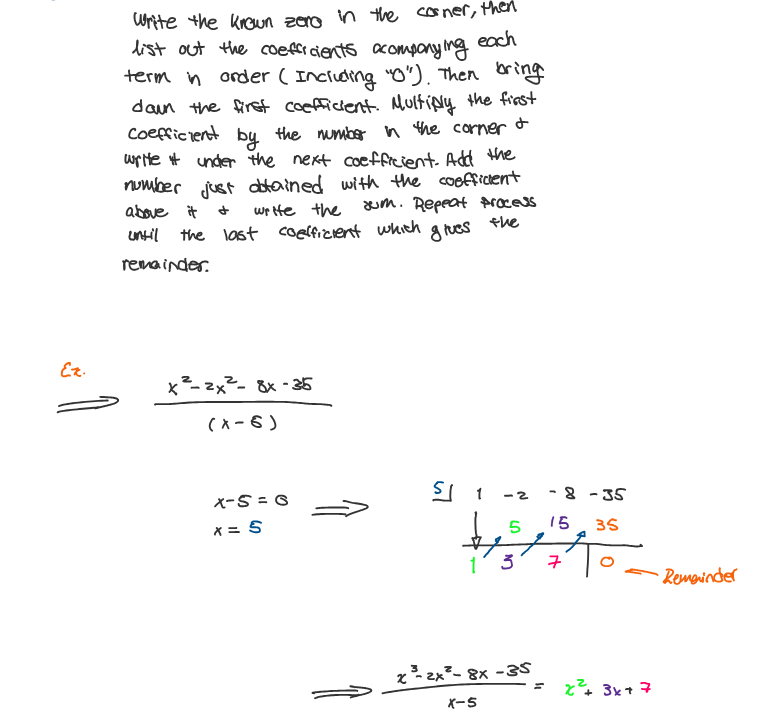 Write the known zero in the corner, then
list out the coefficients acompanying each
term in order (Including "0"). Then bring
down the first coefficient. Multiply the first
coefficient by the number in the corner &
write it under the next coefficient. Add the
number just obtained with the coefficient
above it & write the sum. Repeat process
until the last coefficient which gives the
remainder.
Ex.
⟹ x²-2x²-8x-35
(x-6)
x-5=6 ⟹
x=5
5| 1 -2 -8 -35
5 15 35
1 3 7 | 0 ← Remainder
⟹ x³-2x²-8x-35
x-5
= x²+3x+7